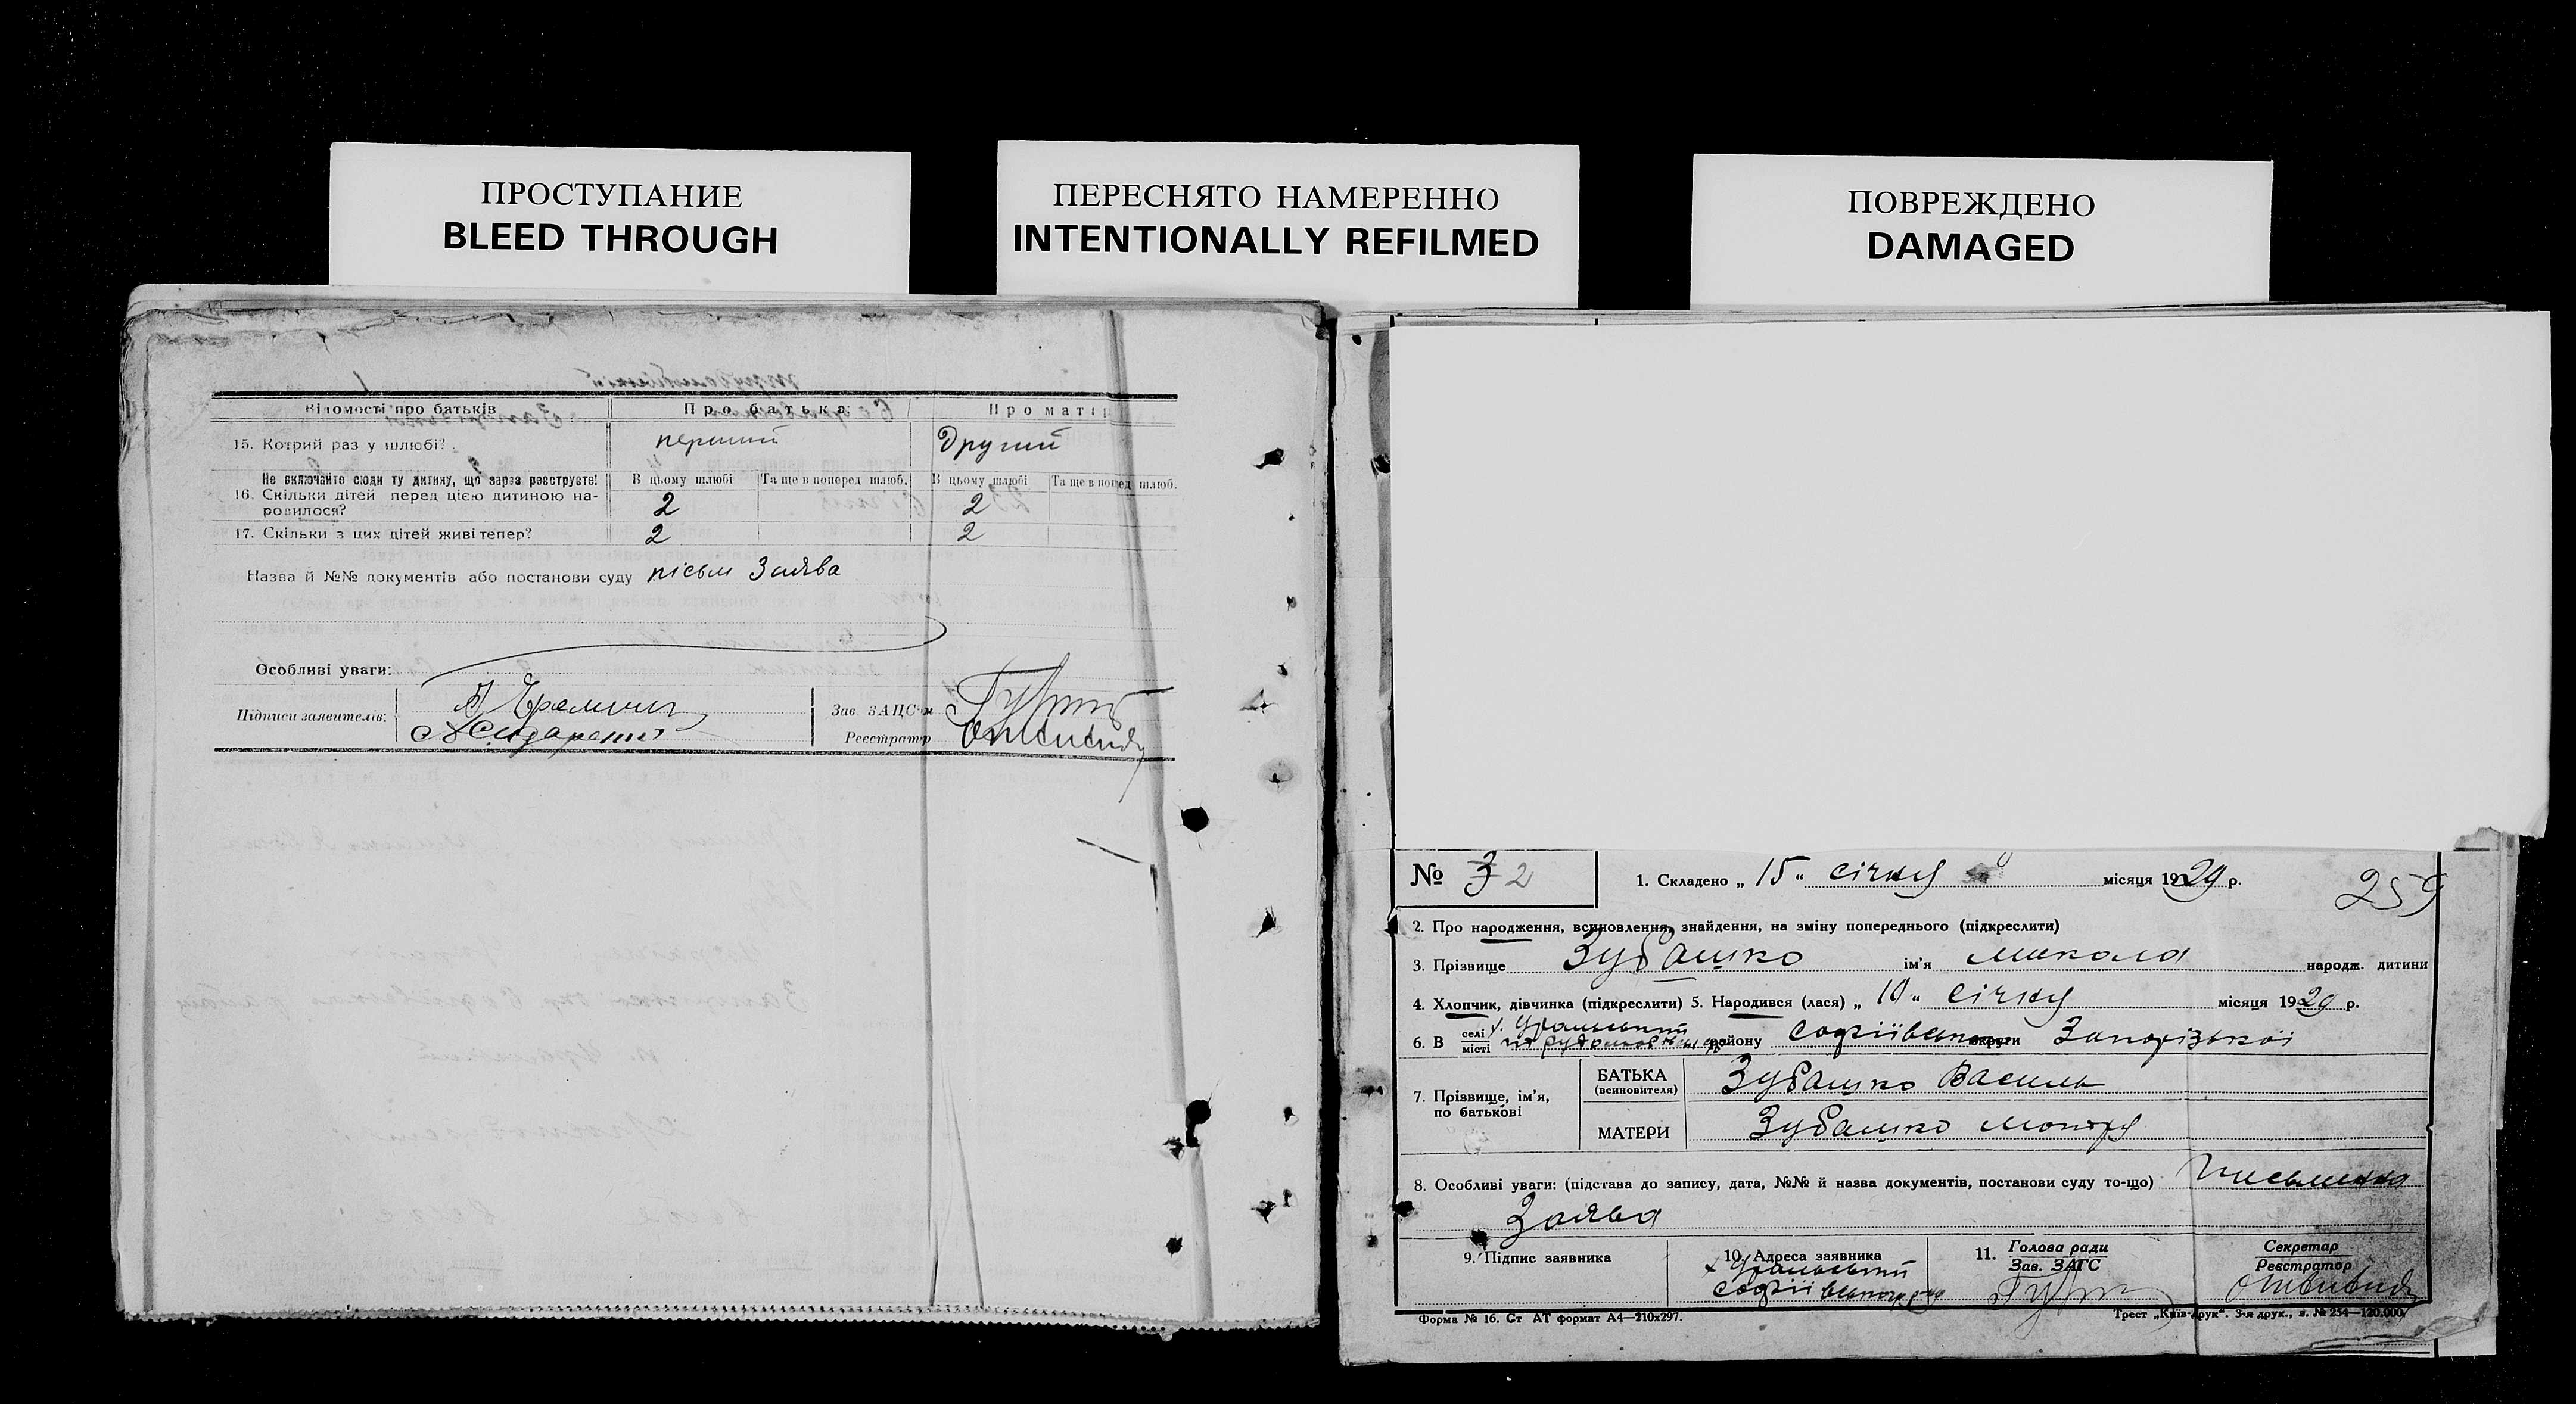 ПРОСТУПАНИЕ
BLEED THROUGH
ПЕРЕСНЯТО НАМЕРЕННО
INTENTIONALLY REFILMED
ПОВРЕЖДЕНО
DAMAGED
Відомості про батьків Про батька Про матір
15. Котрий раз у шлюбі? перший другий
Не включайте сюди ту дитину, що зараз реєструєте!
В цьому шлюбі Та ще в поперед шлюб. В цьому шлюбі Та ще в поперед шлюб.
16. Скільки дітей перед цією дитиною на-
родилося? 2 2
17. Скільки з цих дітей живі тепер? 2 2
Назва й №№ документів або постанови суду письм Заява
Особливі уваги:
Підписи заявителів:
Зав ЗАЦС-ом
Реєстратор
№ 2
1. Складено „ 15 “ січня місяця 1929 р.
259
2. Про народження, всиновлення, знайдення, на зміну попереднього (підкреслити)
3. Прізвище Зубашко ім'я Микола народж. дитини
4. Хлопчик, дівчинка (підкреслити) 5. Народився (лася) „ 10 “ січня місяця 1929 р.
6. В селі х. Уральський
місті району Софіївського округи Запорізької
7. Прізвище, ім'я,
по батькові
БАТЬКА
(всиновителя) Зубашко Василь
МАТЕРИ Зубашко Мотря
8. Особливі уваги: (підстава до запису, дата, №№ й назва документів, постанови суду то-що) Письменна
Заява
9. Підпис заявника
10. Адреса заявника
х Уральський
Софіївського р-ну
11. Голова ради
Зав. ЗАГС
Секретар
Реєстратор
Форма № 16. Ст АТ формат А4—210x297.
Трест „Київ-Друк“. 3-я друк., з. № 254—120.000